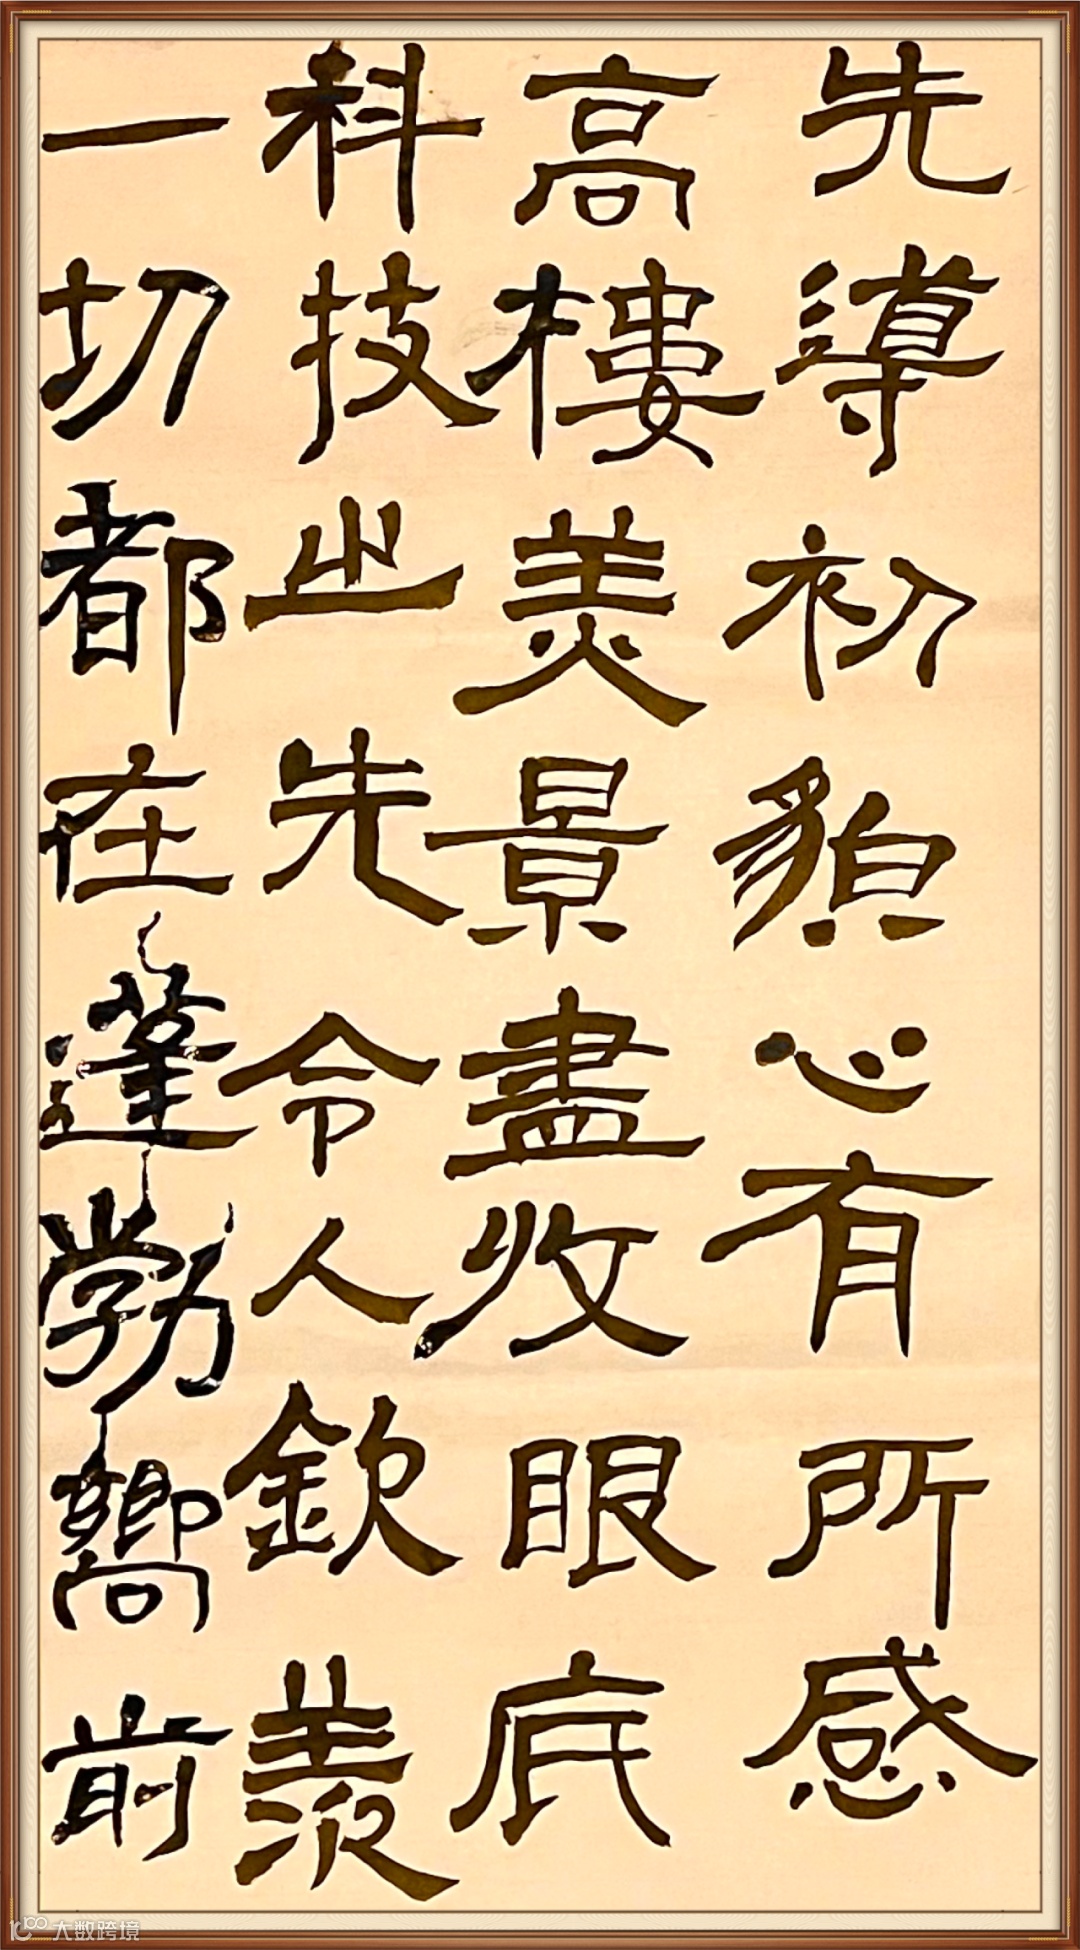 先導初貌心有所感
高樓美景盡收眼底
科技之先令人欽羨
一切都在蓬勃嚮前
大数跨境